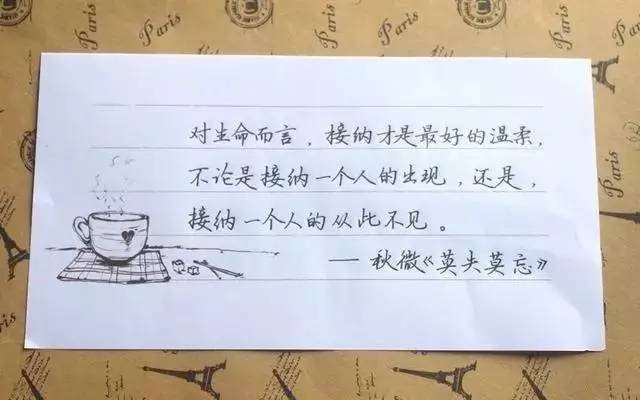 Paris
Paris
Paris
对生命而言，接纳才是最好的温柔，
不论是接纳一个人的出现，还是，
接纳一个人的从此不见。
——秋微《莫失莫忘》
Paris
Paris
Paris